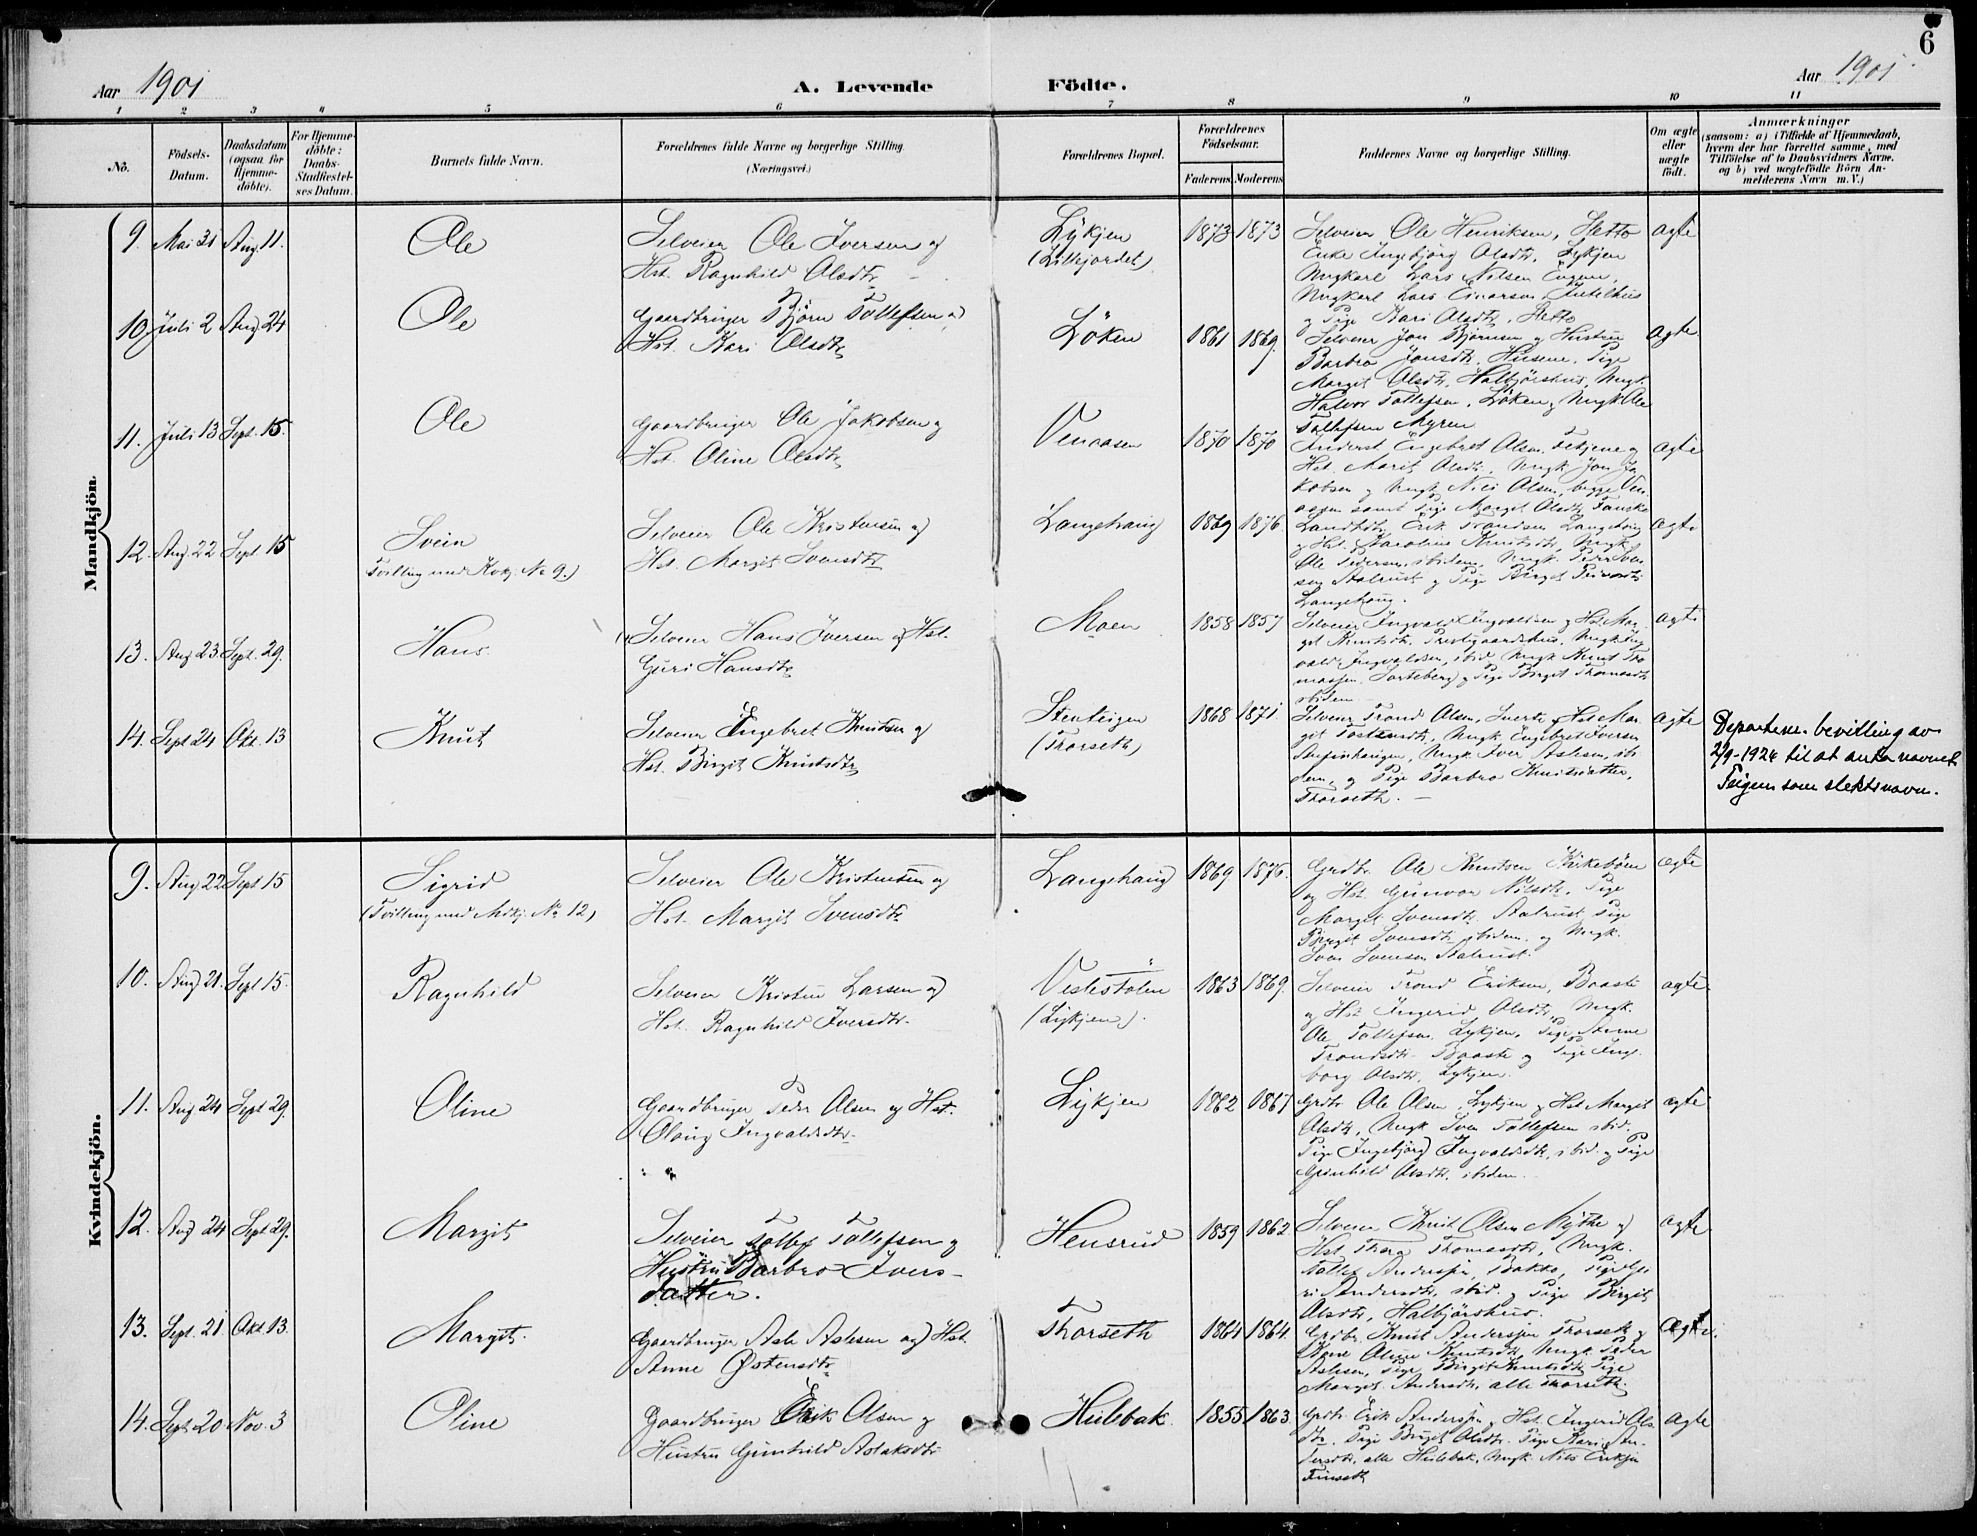 6
Aar 1901
A. Levende Födte.
Aar 1901
1 2 3 4 5 6 7 8 9 10 11
No.
Födsels-Datum.
Daabsdatum (ogsaa for Hjemme-döbte).
For Hjemme-döbte: Daabs-Stadfæstel-ses Datum.
Barnets fulde Navn.
Forældrenes fulde Navne og borgerlige Stilling (Næringsvei.)
Forældrenes Bopæl.
Forældrenes Födselsaar.
Faderens Moderens
Faddernes Navne og borgerlige Stilling.
Om ægte eller uægte födt.
Anmærkninger
(saasom: a) i Tilfælde af Hjemmedaab,
hvem der har forrettet samme, med
Tilföielse af to Daabsvidners Navne.
og b) ved uægtefödte Börn An-
melderens Navn m. V.)
Mandkjön.
9. Mai 31 Aug. 11. Ole
Selveier Ole Iversen og
Hst. Ragnhild Olsdtr
Lykjen
(Lillejordet)
1873 1873
Selveier Ole Henriksen, Sletto
Enke Ingebjörg Olsdtr. Lykjen
Ungkarl Lars Nilsen Engen,
Ungkarl Lars Einarsen
og Pige Kari Olsdtr. Sletto
ægte
10 Juli 2 Aug. 24 Ole
Gaardbruger Björn Tollefsen og
Hst. Kari Olsdtr
Löken
1861 1869.
Selveier Jon Björnsen og Hustru
Barbro Jonsdtr. Husene. Pige
Margit Olsdtr. Halbjörshus, Ungk.
Halvor Tollefsen, Löken og Ungk Ole
Tollefsen Myren
ægte
11. Juli 13 Sept. 15. Ole
Gaardbruger Ole Jakobsen og
Hst. Oline Olsdtr
Venaasen
1870 1870
Engebret Olsen og
Hst. Marit Olsdtr., Ungk Jon Ja-
kobsen og Ungk Nils Olsen, begge Ven-
aasen samt Pige Margit Olsdtr
ægte
12. Aug. 22 Sept 15 Svein
Tvilling med Kvkj. No 9.)
Selveier Ole Kristensen og
Hst. Margit Svensdtr
Langehaug
1869 1876
Erik Trondsen Langehaug
og Hst. Karoline Knutsdtr, Ungk
Ole Pedersen, ibidem, Ungk. Peder Sven-
sen Aalrust og Pige Birgit
Langehaug.
ægte
13. Aug 23 Sept. 29. Hans
Selveier Hans Iversen og Hst.
Guri Hansdtr
Moen
1858 1857
Selveier Ingvald Ingvaldsen og Hst. Mar-
git Knutsdtr. Prestgaardshus. Ungk Ing-
vald Ingvaldsen, ibid. Ungk Knut Tho-
massen og Pige Birgit Thomasdtr
ibidem
ægte
14. Sept 24 Okt. 13 Knut
Selveier Engebret Knutsen og
Hst. Birgit Knutsdtr
Stenteigen
(Thorseth)
1868 1871.
Selveier Trond Olsen, og Hst. Mar-
git Ungk Engebret Iversen
Ungk. Iver Aslesen, ibi-
dem, og Pige Barbro Knutsdatter,
Thorseth.
ægte
Departem. bevilling av
2/9-1924 til at anta navnet
Teigen som slektsnavn.
Kvindekjön.
9. Aug 22 Sept 15 Sigrid
(Tvilling med Mdkj. No 12)
Selveier Ole Kristensen og
Hst. Margit Svensdtr
Langehaug
1869 1876.
Grdbr. Ole Knutsen Kirkeböen
og Hst. Gunvor Nilsdtr. Pige
Margit Svensdtr. Aalrust, Pige
Birgit Svensdtr ibidem og Ungk.
Iver Svensen Aalrust.
ægte
10. Aug 21. Sept 15. Ragnhild
Selveier Kristen Larsen og
Hst. Ragnhild Iversdtr.
Vestestölen
(Lykjen).
1863 1869.
Selveier Trond Eriksen, Baaste
og Hst Ingerid Olsdtr, Ungk.
Ole Tollefsen Lykjen, Pige
Trondsdtr Baaste og Pige Inge-
borg Olsdtr. Lykjen.
ægte
11. Aug 24 Sept 29. Oline
Gaardbruger Peder Olsen og Hst.
Olaug Ingvaldsdtr.
Lykjen
1862 1867
Grdbr. Ole Olsen Lykjen og Hst Margit
Olsdtr, Ungk Sven Tollefsen ibid.
Pige Ingebjörg Ingvaldsdtr, ibid. og Pige
Gunhild Olsdtr, ibidem.
ægte
12. Aug 24 Sept 29. Margit
Selveier Tollef Tollefsen og
Hustru Barbro Ivers-
datter.
Hensrud
1859 1862.
Selveier Knut Olsen Mythe og
Hst. Thora Thomasdtr, Ungk.
Tollef Andersen, Bakko, Pige Gu-
ri Andersdtr, ibid. og Pige Birgit
Olsdtr, Halbjörshus.
ægte
13. Sept. 21. Okt. 13. Margit.
Gaardbruger Asle Aslesen og Hst.
Anne Østensdtr
Thorseth
1864 1864.
Grdbr. Knut Andersen Thorseth og
Kone Oline Knutsdtr Ungk. Peder
Aslesen, Pige Birgit Knutsdtr, Pige
Margit Andersdtr, alle Thorseth.
Ægte.
14. Sept 20 Nov. 3 Oline
Gaardbruger Erik Olsen og
Hustru Gunhild Aslaksdtr
Hulebak
1855 1863.
Grdbr. Erik Andersen og Hst. Ingerid Ols-
dtr. Pige Birgit Olsdtr. Pige Kari An-
dersdtr, alle Hulebak, Ungk. Nils Eriksen
Finseth
ægte